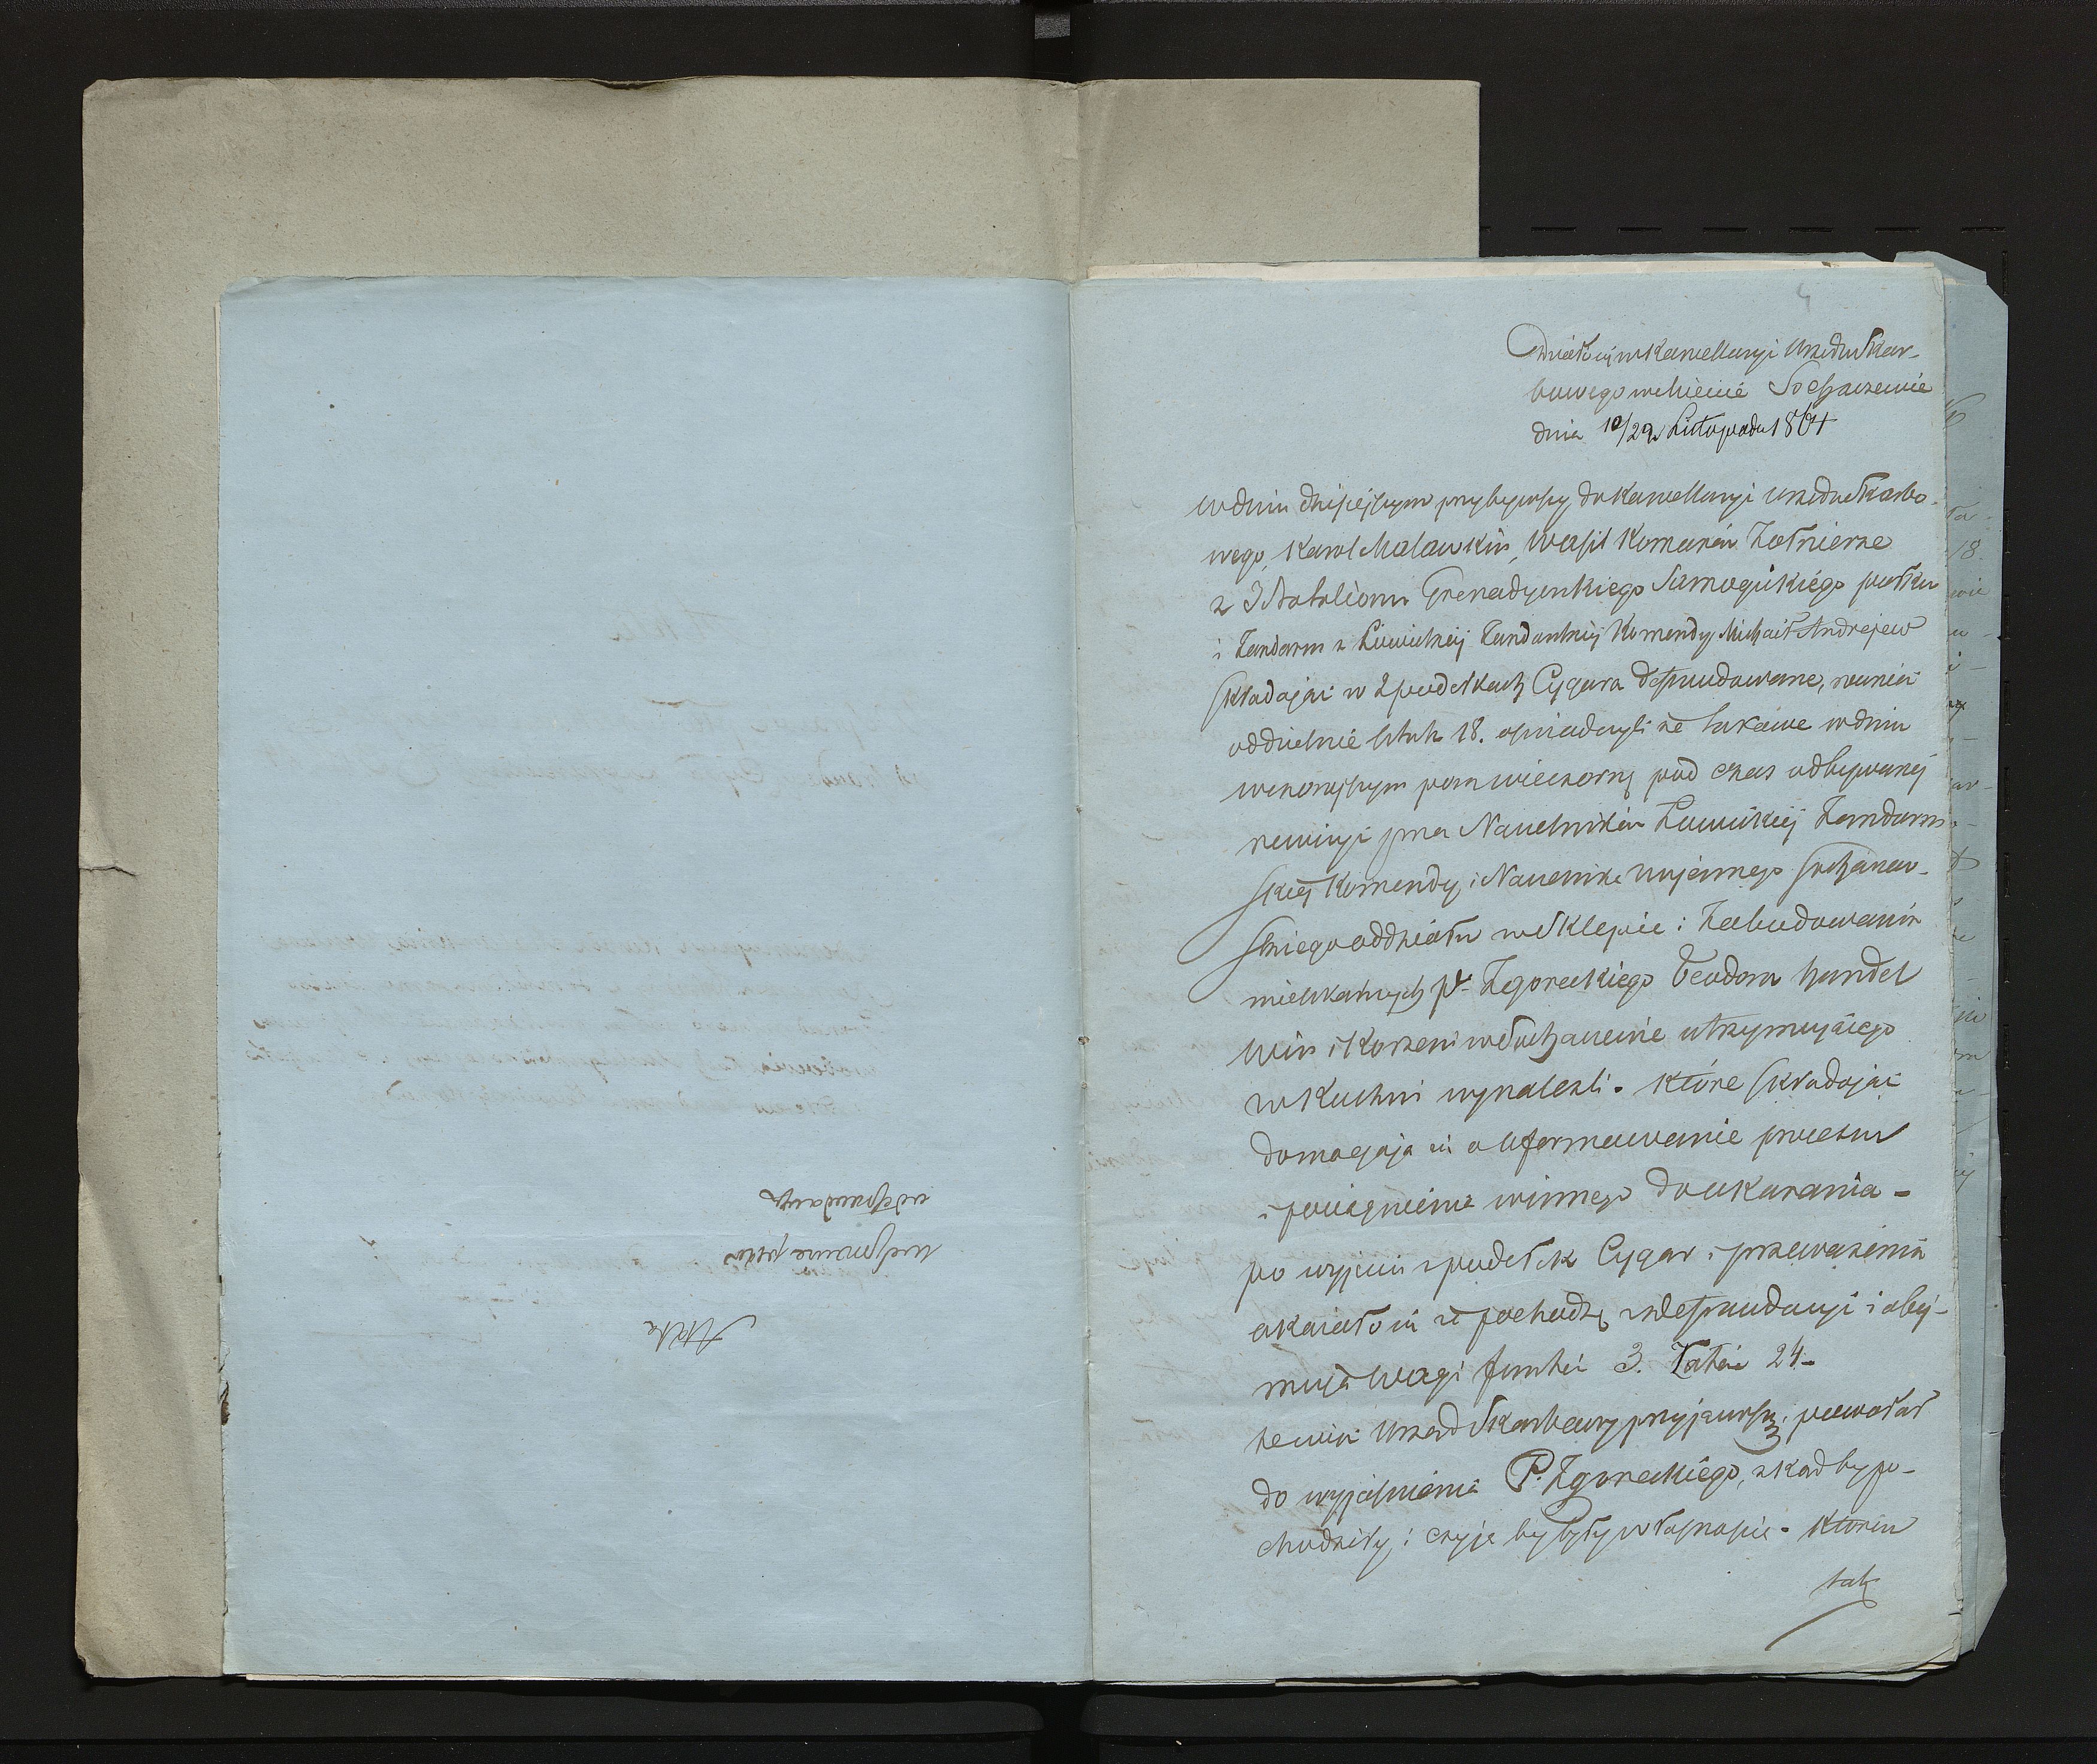 4
Działo się w Kancellaryi Urzędu Skar-
bowego w Mieście Sochaczewie
dnia 10/22 Listopada 1864
W dniu dzisiejszym przybywszy do Kancellaryi Urzędu Skarbo-
wego, Karol Malawkin, Wasil Komarów Żołnierze
z 3 Batalionu Grenadyerskiego Samogickiego pułku
i Żandarm z Łowickiej Żandarmskiej Komendy Michaił Andrejew
składając w 2 pudełkach Cygara defraudowane, niemniej
oddzielnie sztuk 18. oświadczyli że takowe w dniu
wczorajszym porą wieczorną pod czas odbywanej
rewizyi przez Naczelników Łowickiej Żandarm-
skiej Komendy, i Naczelnika Wojennego Sochaczew-
skiego oddziału w Sklepie i Zabudowaniu
mieszkalnych P. Zgoreckiego Teodora handel
Win i Korzeni w Sochaczewie utrzymującego
w Kuchni wynaleźli - które składając
domagają się o uformowanie processu
i pociągnienia winnego do ukarania -
po wyjęciu z pudełek Cygar i przeważenia
okazało się że pochodzą z defraudacyi i obej-
mują wagi funtów 3. Łutów 24 -
Urząd Skarbowy przyjąwszy, powołał
do wyjaśnienia P. Zgoreckiego, zkąd by po-
chodziły i czyje by były własnością - który
tak
Akta